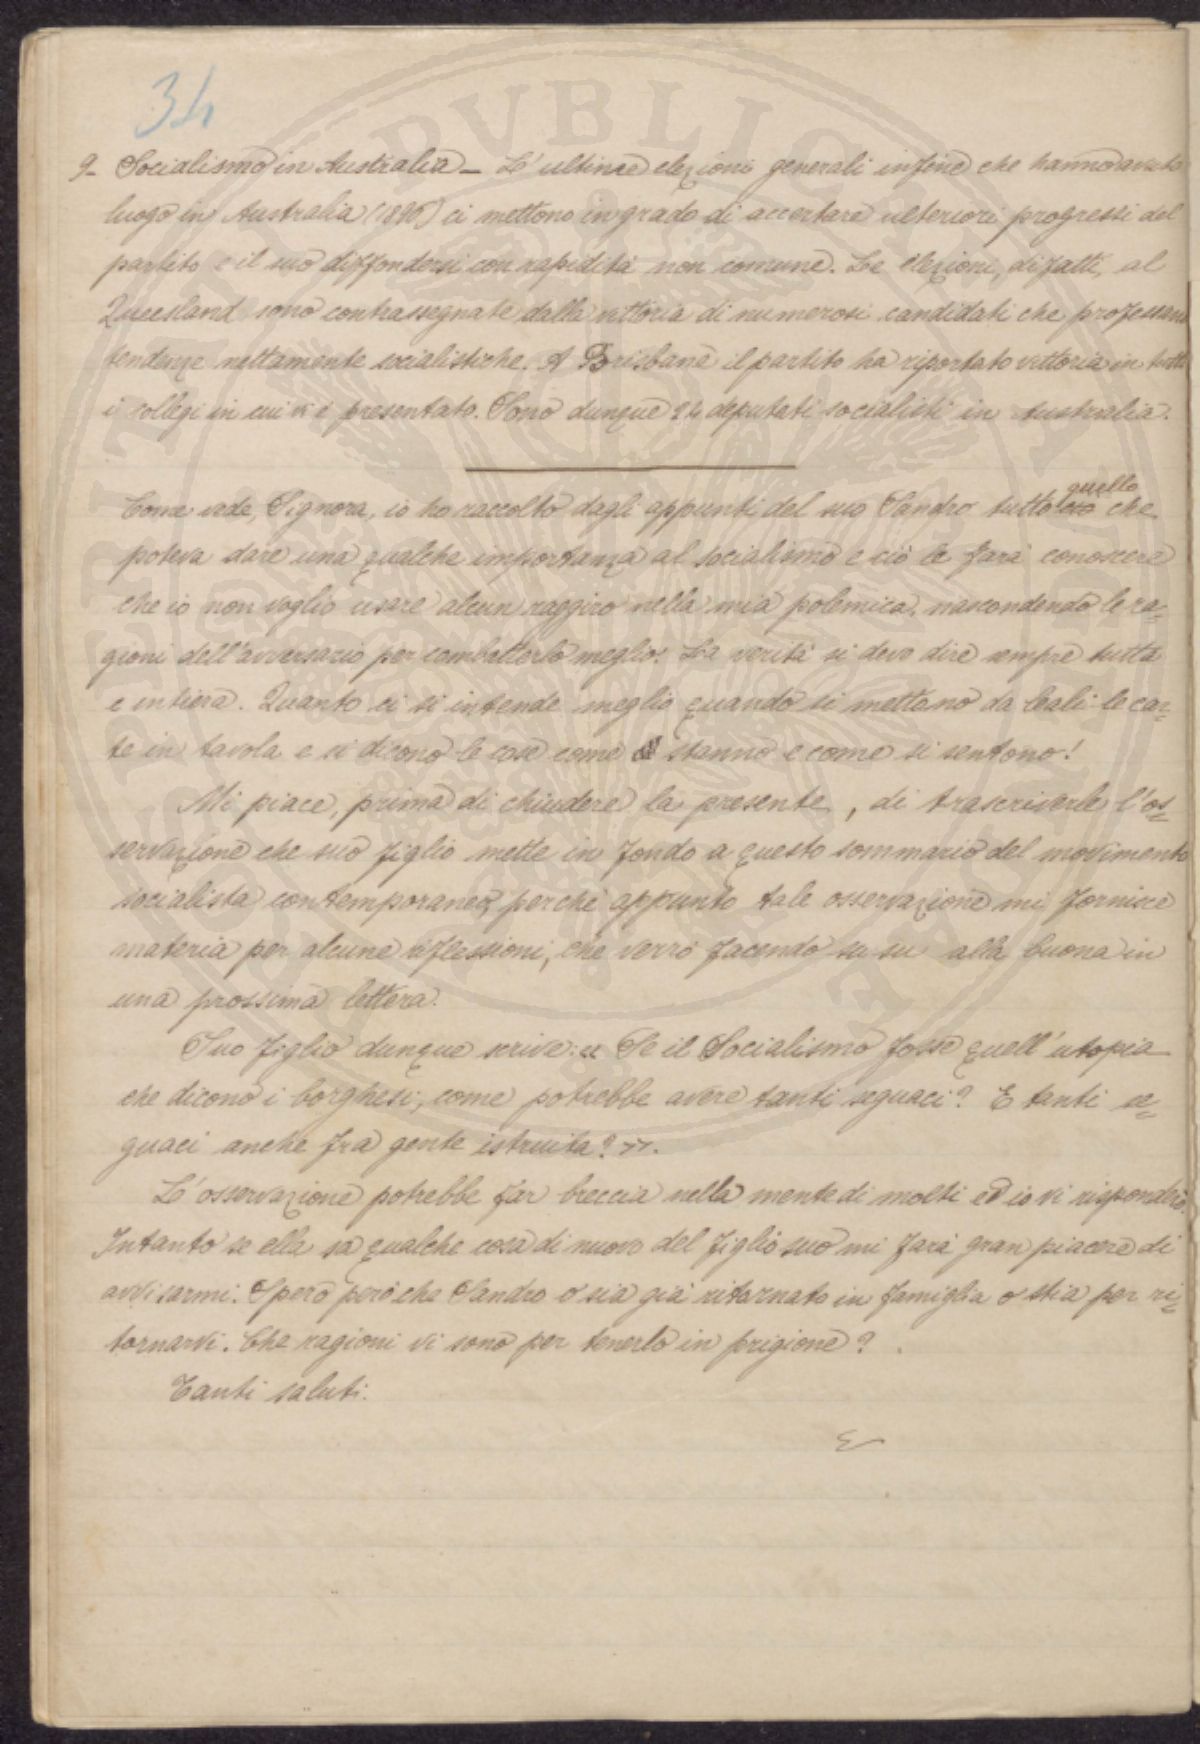 34
9- Socialismo in Australia - Le ultime elezioni generali infine che hanno avuto
luogo in Australia (1896) ci mettono in grado di accertare ulteriori progressi del
partito e il suo diffondersi con rapidità non comune. Le elezioni, difatti, al
Queesland sono contrassegnate dalla vittoria di numerosi candidati che professano
tendenze nettamente socialistiche. A Brisbane il partito ha riportato vittoria in tutti
i collegi in cui vi è presentato. Sono dunque 24 deputati socialisti in Australia.
quello
Come vede, Signora, io ho raccolto dagli appunti del suo Sandro tutto che
poteva dare una qualche importanza al socialismo e ciò le farà conoscere
che io non voglio usare alcun raggiro nella mia polemica, nascondendo le ra=
gioni dell'avversario per combatterlo meglio. La verità si deve dire sempre tutta
e intiera. Quanto ci si intende meglio quando si mettono da leali le car=
te in tavola e si dicono le cose come stanno e come si sentono!
Mi piace, prima di chiudere la presente, di trascriverle l'os=
servazione che suo figlio mette in fondo a questo sommario del movimento
socialista contemporaneo, perchè appunto tale osservazione mi fornisce
materia per alcune riflessioni, che verrò facendo su su alla buona in
una prossima lettera.
Suo figlio dunque scrive: « Se il Socialismo fosse quell'utopia
che dicono i borghesi, come potrebbe avere tanti seguaci? E tanti se=
guaci anche fra gente istruita? ».
L'osservazione potrebbe far breccia nella mente di molti ed io vi risponderò.
Intanto se ella sa qualche cosa di nuovo del figlio suo mi farà gran piacere di
avvisarmi. Spero però che Sandro o sia già ritornato in famiglia o stia per ri=
tornarvi. Che ragioni vi sono per tenerlo in prigione?
Tanti saluti.